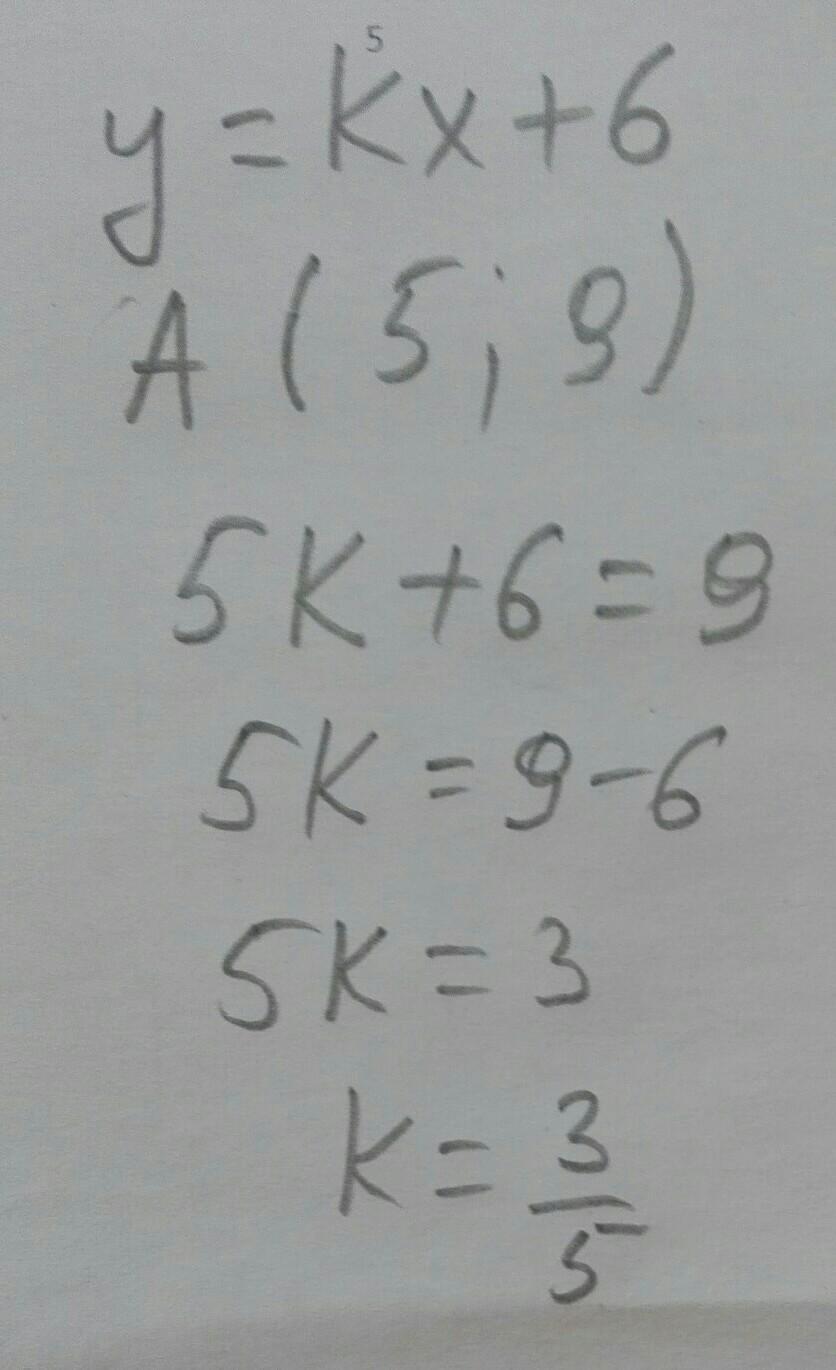 5
y = kx + 6
A ( 5 ; 9 )
5k + 6 = 9
5k = 9 - 6
5k = 3
k = 3/5